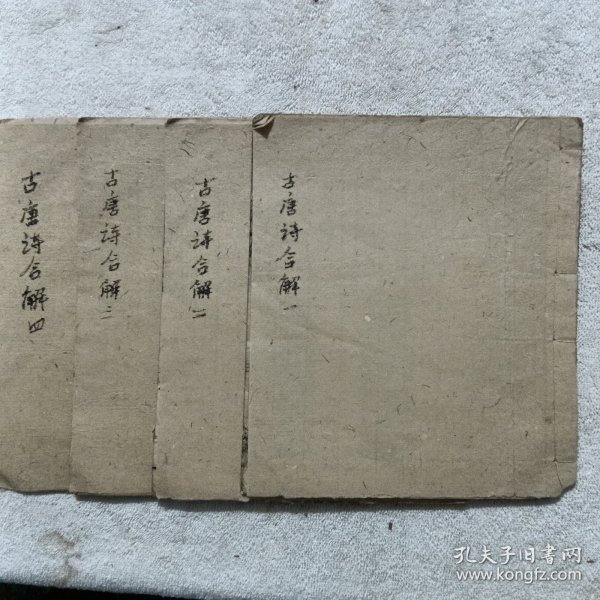 古唐诗合解一
古唐诗合解二
古唐诗合解三
古唐诗合解四
孔夫子旧书网
www.kongfz.com